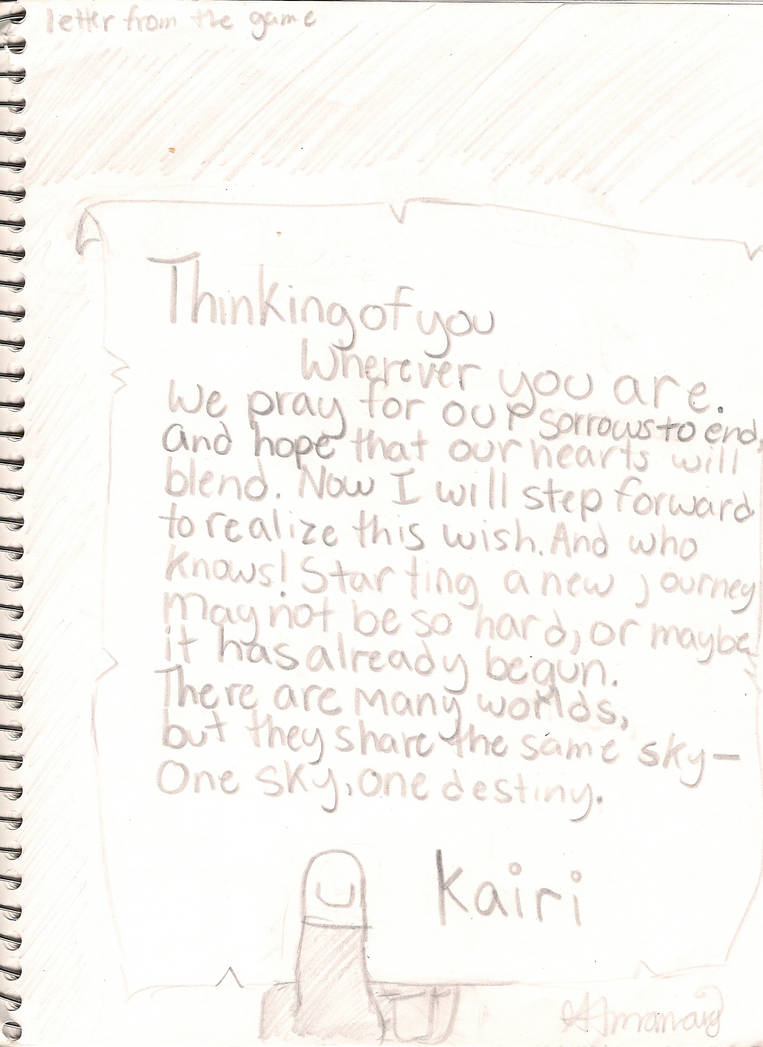 letter from the game
Thinking of you
Wherever you are.
We pray for our sorrows to end,
and hope that our hearts will
blend. Now I will step forward
to realize this wish. And who
knows! Starting a new journey
may not be so hard, or maybe
it has already begun.
There are many worlds,
but they share the same sky—
One sky, one destiny.
Kairi